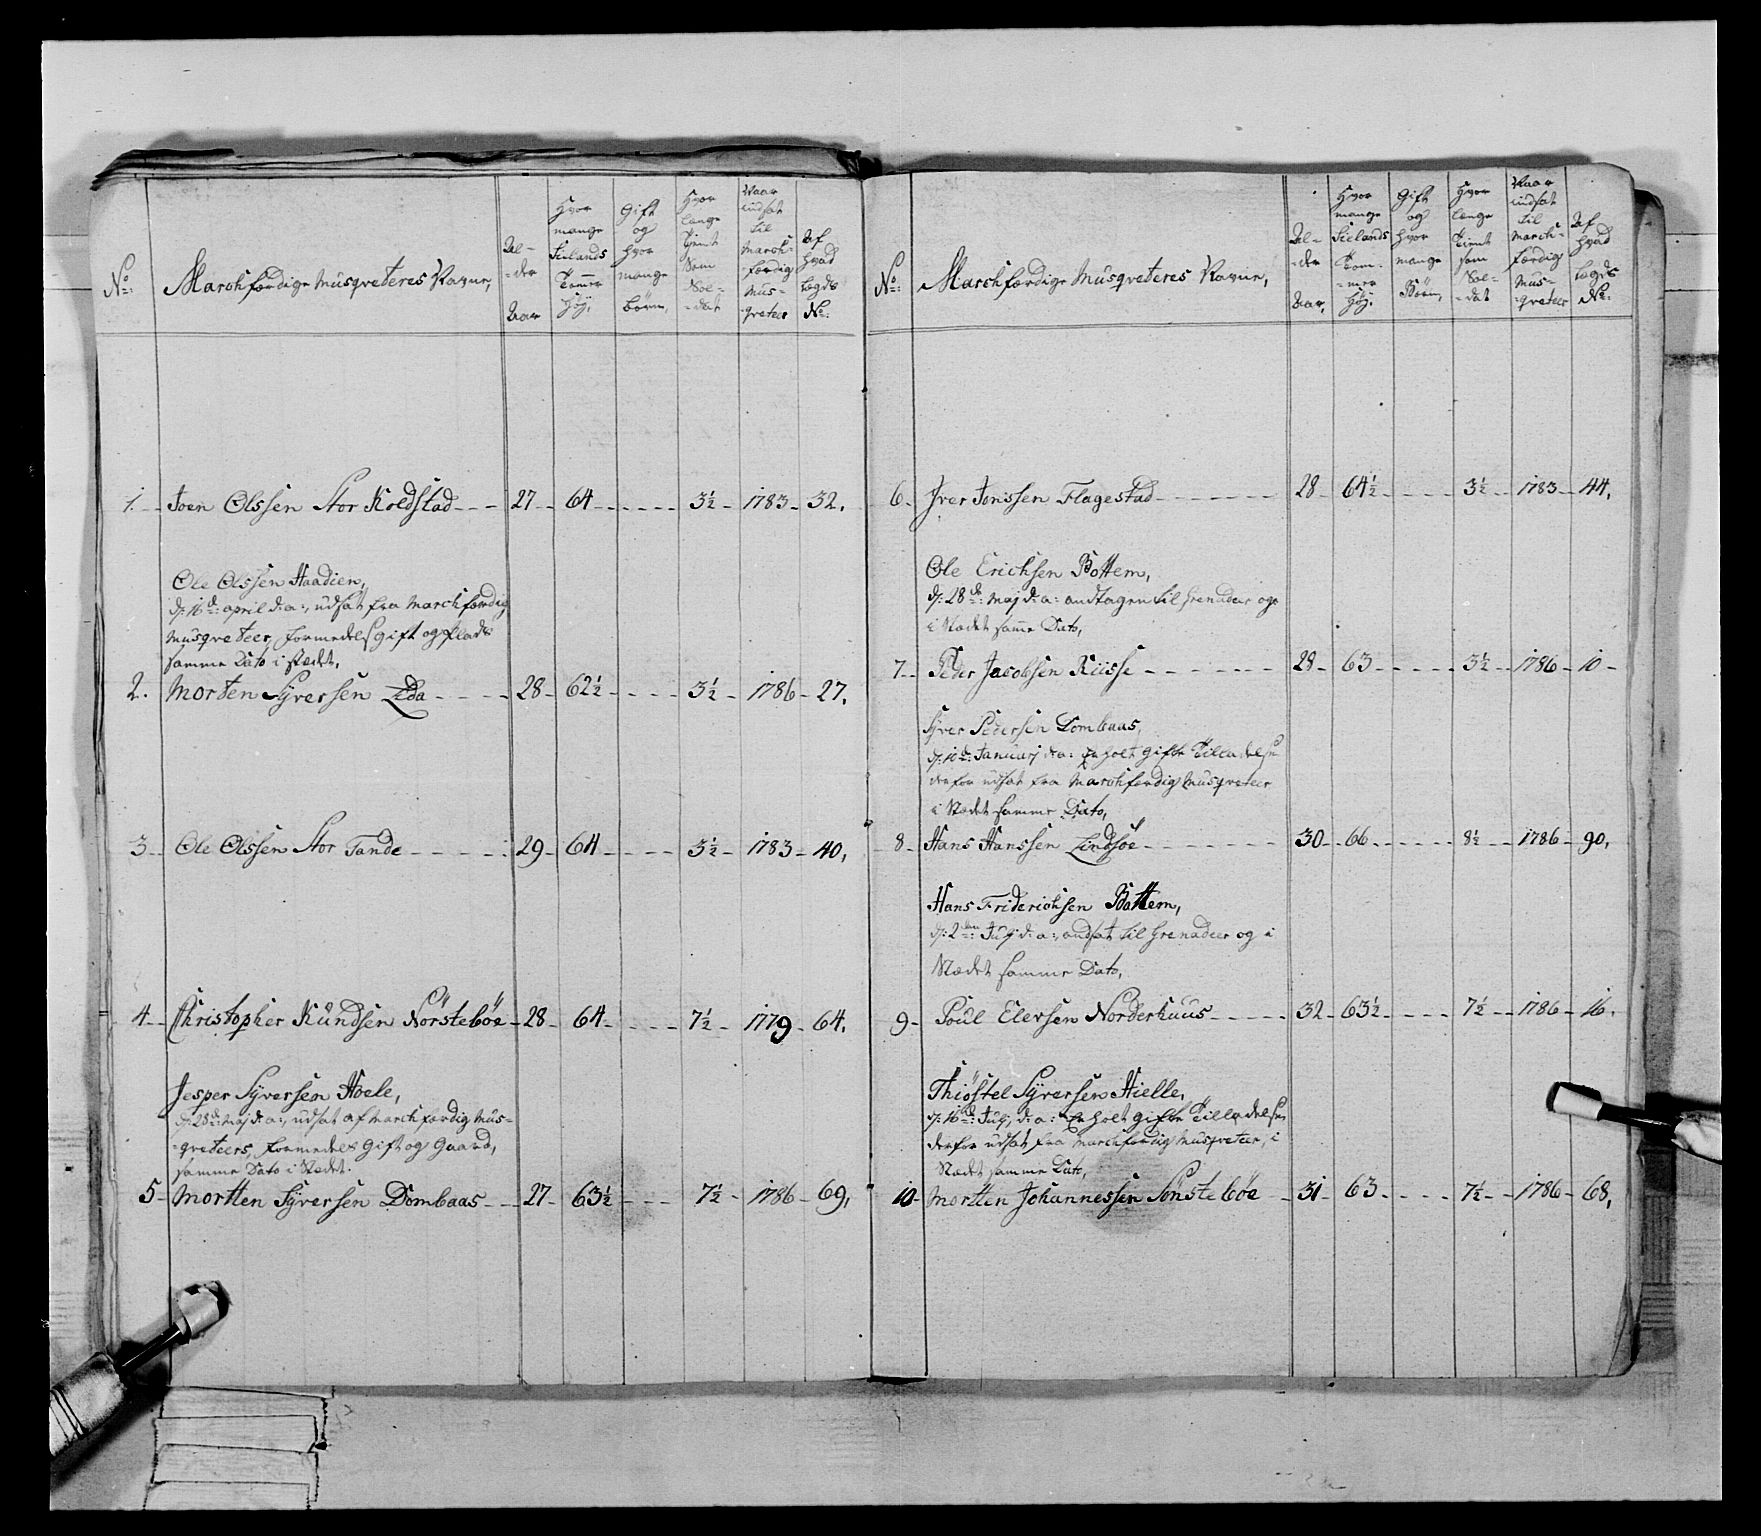 No:
Marchfærdige Musqveteres Navne,
Al-
-der
Aar
Hvor
mange
Siælands
Tommer
Høy,
Gift
og
hvor
mange
børn,
Hvor
længe
Tient
Som
Sol-
-dat
Naar
indsat
til
March-
færdig
Mus-
-qveteer
Af
hvad
Lægds
No:
1. Joen Olssen Stor Koldstad 27 64 3½ 1783 32.
Ole Olssen Haadien,
d: 16de: april d: a:, udsat fra Marchfærdig
Musqveteer, formedelst gift og Plads
samme Dato i stædet,
2. Morten Syversen Lda 28 62½ 3½ 1786 27.
3 Ole Olssen Stor Tande 29 64 3½ 1783 40,
4 Christopher Knudsen Nørsteböe 28 64 7½ 1779 64.
Jesper Syversen Hoele,
d: 28de: Maj d: a:, udsat af Marchfærdig Mus-
-qveteers, formedelst Gift og Gaard,
samme Dato i Stædet.
5 Mortten Syversen Dombaas 27 63½ 7½ 1786 69,
No:
Marchfærdige Musqveteres Navne,
Al-
-der
Aar,
Hvor
mange
Siælands
Tom-
-mer
Høj.
Gift
og
hvor
mange
Børn,
Hvor
længe
Tient
som
Sol-
-dat
Naar
indsat
til
march-
færdig
Mus-
-qveteer
Af
hvad
Lægds
No:
6 Iver Jonssen Flagestad 28 64½ 3½ 1783 44,
Ole Erichsen Bottem,
d: 28de: Maj d: a: andtagen til Grenadeer og
i Stædet samme Dato,
7 Peder Jacobsen Kiisse 28 63 3½ 1786 10
Syver Pedersen Dombaas,
d: 10de: Januarj d: a: Erholt gifte Tilladelse
derfor udsat fra Marchfærdig Musqveteer
i Stædet samme Dato,
8 Hans Hanssen Lindsøe 30 66 8½ 1786 90,
Hans Friderichsen Bottem,
d: 2den: Julj d: a:, andsat til Grenadeer og i
Stædet samme Dato,
9 Poul Elersen Norderhuus 32 63½ 7½ 1786 16.
Thiöstel Syversen Hielle,
d: 16de: Julj d: a: Erholt gifte Tilladelse
derfor udsat fra Marchfærdig Musqveteer, i
Stædet samme Dato,
10 Mortten Johannessen Sönsteböe 31 63 7½ 1786 68,